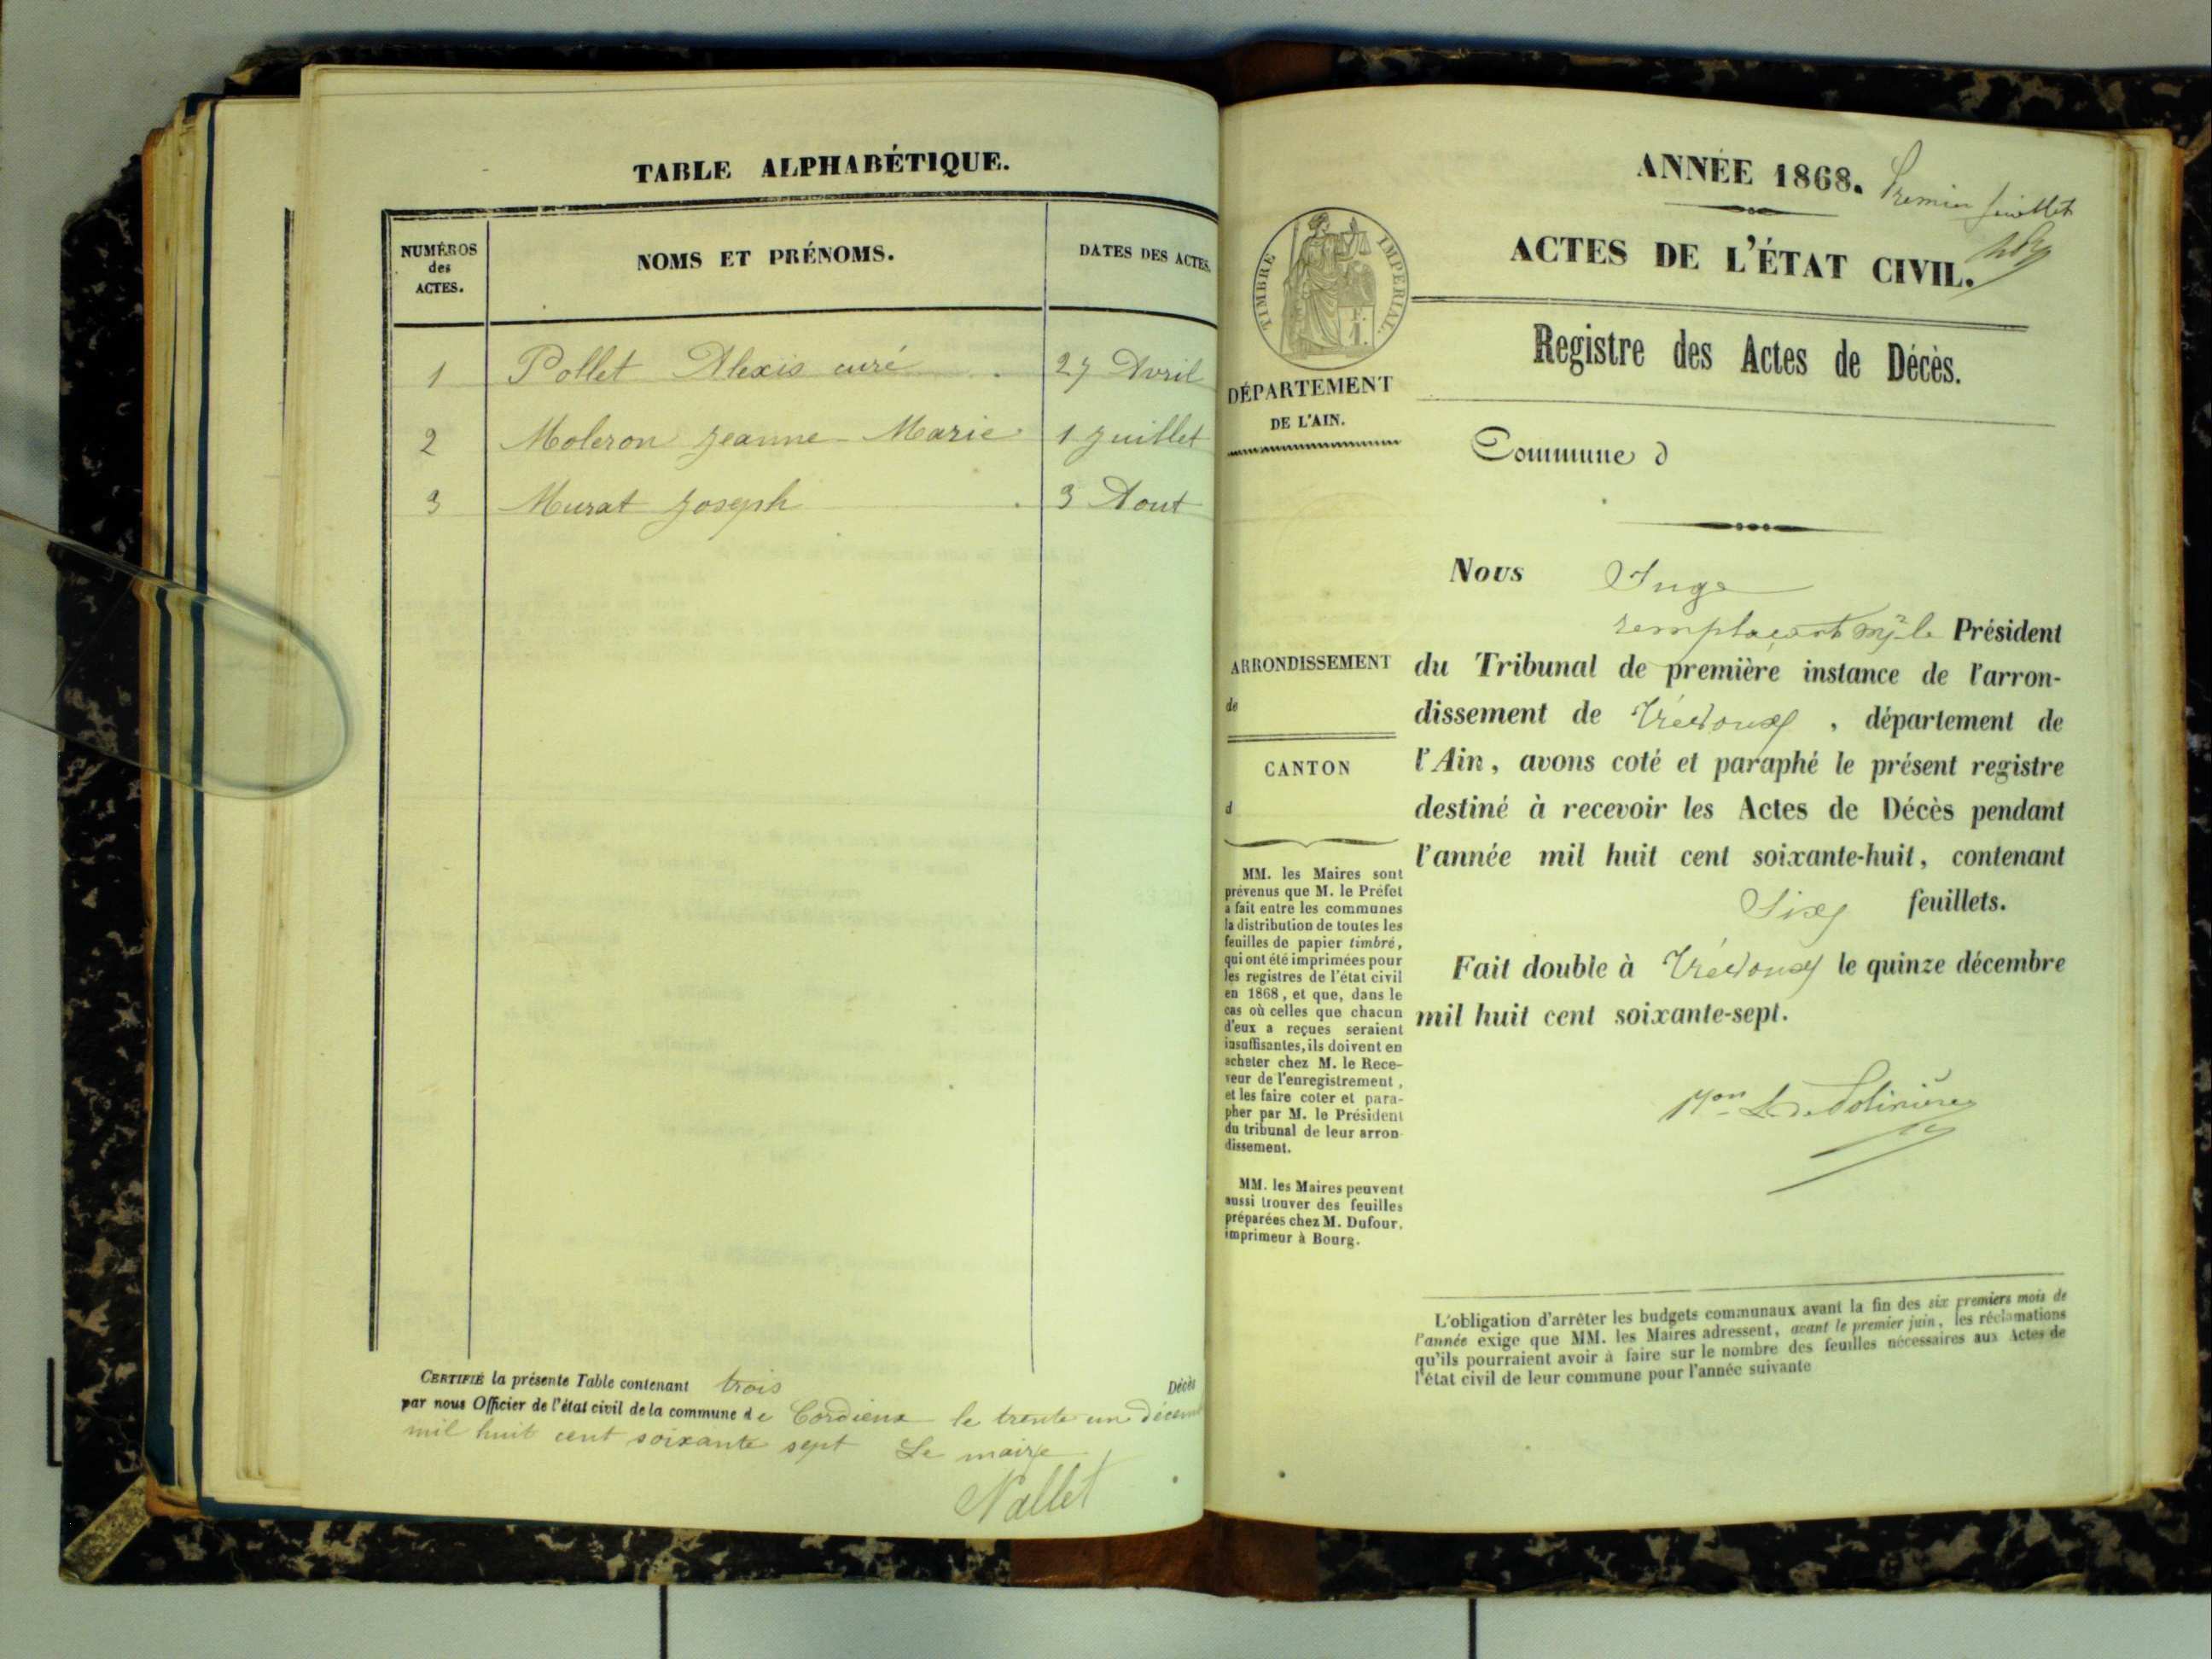 TABLE ALPHABÉTIQUE.
NUMÉROS des ACTES.
NOMS ET PRÉNOMS.
DATES DES ACTES.
1 Pollet Alexis curé 27 Avril
2 Moleron Jeanne-Marie 1 Juillet
3 Murat Joseph 3 Aout
CERTIFIÉ la présente Table contenant trois Décès
par nous Officier de l'état civil de la commune de Cordieux le trente un décem
mil huit cent soixante sept Le maire
Nallet
ANNÉE 1868. Premier feuillet
ACTES DE L'ÉTAT CIVIL.
TIMBRE IMPÉRIAL.
Registre des Actes de Décès.
DÉPARTEMENT
DE L'AIN.
Commune d
ARRONDISSEMENT
de
CANTON
d
MM. les Maires sont
prévenus que M. le Préfet
a fait entre les communes
la distribution de toutes les
feuilles de papier timbré,
qui ont été imprimées pour
les registres de l'état civil
en 1868, et que, dans le
cas où celles que chacun
d'eux a reçues seraient
insuffisantes, ils doivent en
acheter chez M. le Rece-
veur de l'enregistrement,
et les faire coter et para-
pher par M. le Président
du tribunal de leur arron-
dissement.
MM. les Maires peuvent
aussi trouver des feuilles
préparées chez M. Dufour,
imprimeur à Bourg.
Nous Juge
remplaçant Mr le Président
du Tribunal de première instance de l'arron-
dissement de Trévoux, département de
l'Ain, avons coté et paraphé le présent registre
destiné à recevoir les Actes de Décès pendant
l'année mil huit cent soixante-huit, contenant
Six feuillets.
Fait double à Trévoux le quinze décembre
mil huit cent soixante-sept.
L'obligation d'arrêter les budgets communaux avant la fin des six premiers mois de
l'année exige que MM. les Maires adressent, avant le premier juin, les réclamations
qu'ils pourraient avoir à faire sur le nombre des feuilles nécessaires aux Actes de
l'état civil de leur commune pour l'année suivante